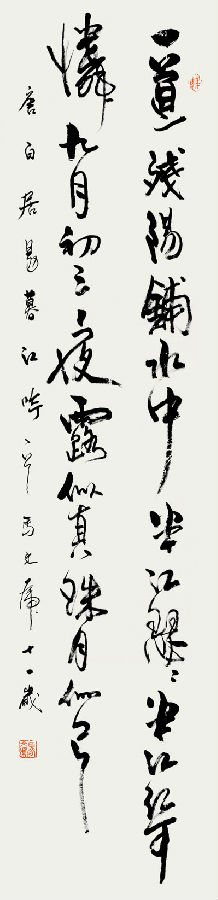 一道殘陽鋪水中半江瑟〻半江紅可
憐九月初三夜露似真珠月似弓
唐白居易暮江吟一首馬文 十一歲